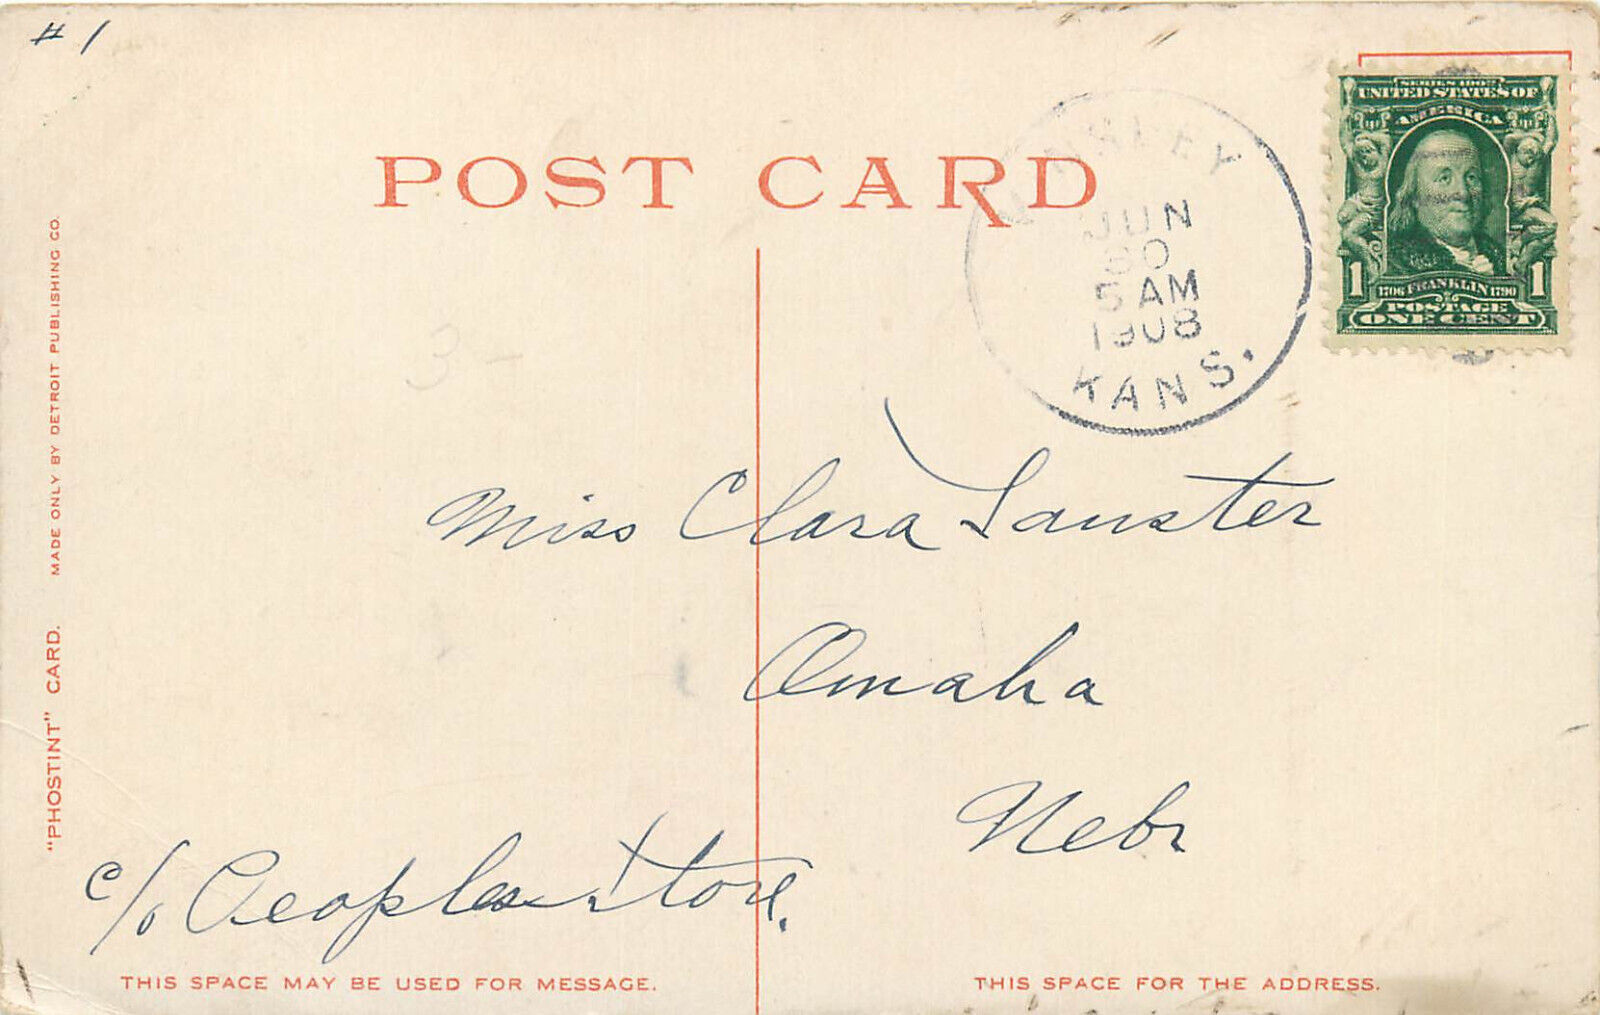 # 1
POST CARD
JUN
30
5 AM
1908
KANS.
SERIES 1902
UNITED STATES OF
AMERICA
1706 FRANKLIN 1790
1 1
POSTAGE
ONE CENT
Miss Clara
Omaha
Nebr
c/o Peoples Store.
"PHOSTINT" CARD. MADE ONLY BY DETROIT PUBLISHING CO.
THIS SPACE MAY BE USED FOR MESSAGE.
THIS SPACE FOR THE ADDRESS.